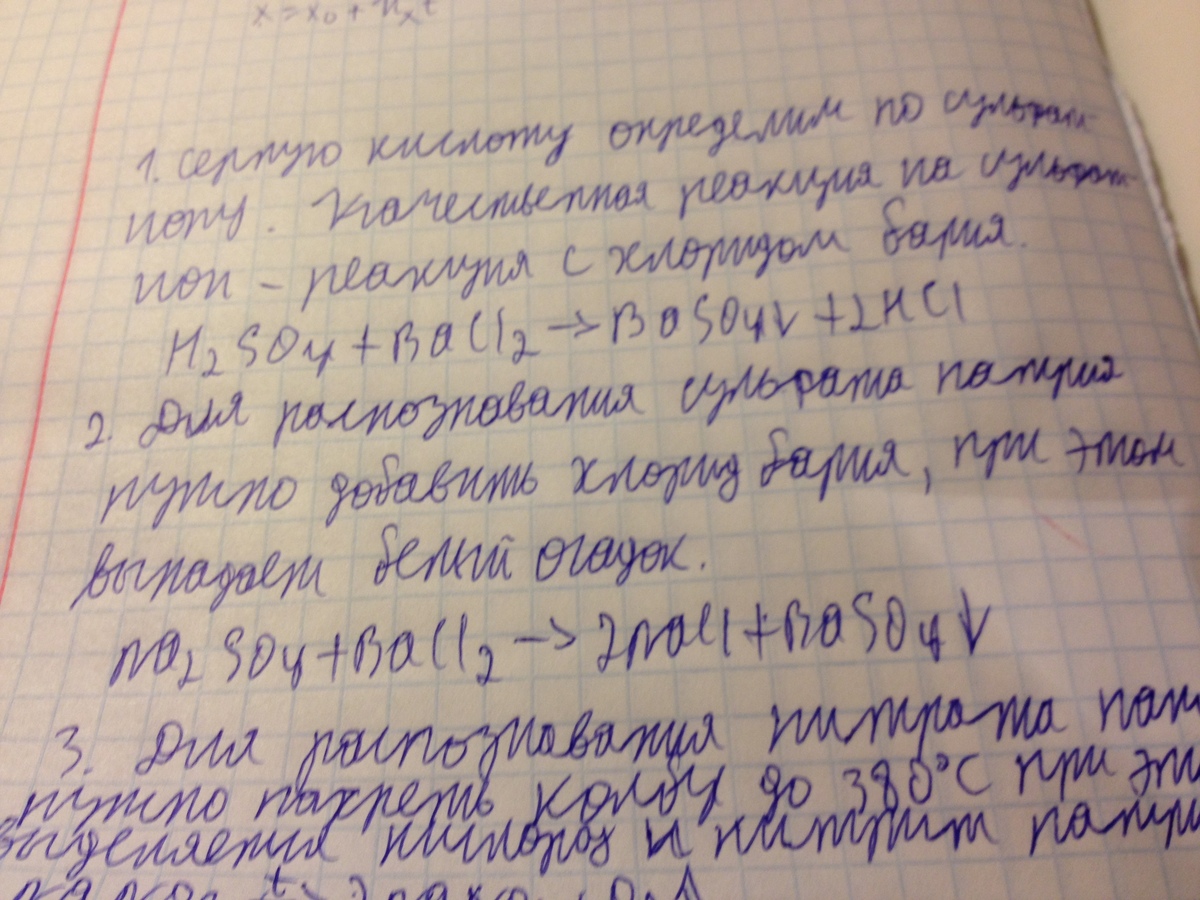 x = x₀ + υₓt
1. серную кислоту определим по сульфат-
иону. Качественная реакция на сульфат-
ион – реакция с хлоридом бария.
H₂SO₄ + BaCl₂ → BaSO₄↓ + 2HCl
2. Для распознавания сульфата натрия
нужно добавить хлорид бария, при этом
выпадает белый осадок.
Na₂SO₄ + BaCl₂ → 2NaCl + BaSO₄↓
3. Для распознавания нитрата нат
нужно нагреть колбу до 380°C при это
выделяется кислород и нитрит натри